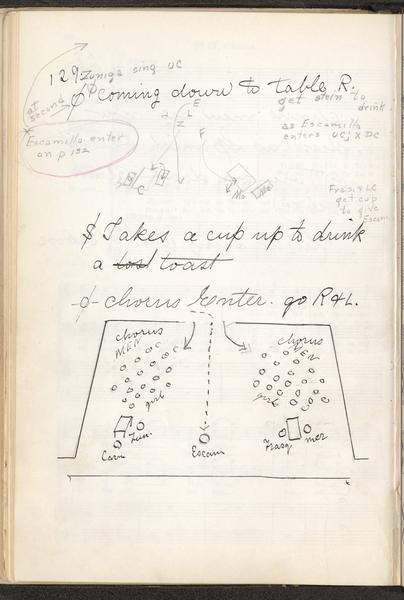 129 Zuniga sing UC
∅ coming down to table R.
at
second
get stein to
drink
* Escamillo enter
on p 132
as Escamillo
enters UC; X DC
E
L
N
F
C
Mo
Me
Fras. X LC
get cup
to give
Escam
$ Takes a cup up to drink
a lost toast
-∅- chorus Enter. go R & L.
chorus
MEN
girls
chorus
MEN
girls
Carm
Zun.
Escam
Frasq
mer